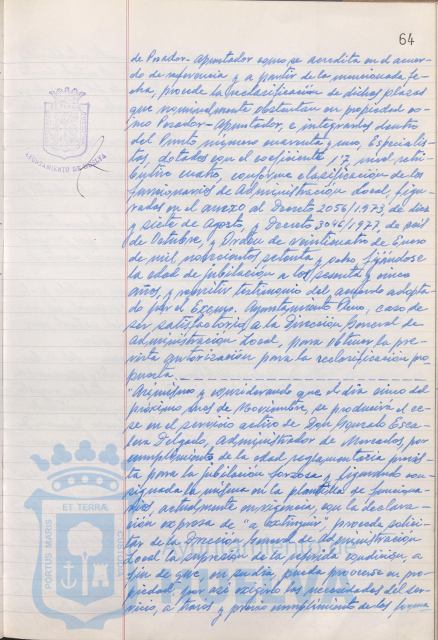 64
de Pesador-Apuntador como se acredita en el acuer-
do de referencia y a partir de la mencionada fe-
cha, procede la reclasificación de dichas plazas
que nominalmente obstentan en propiedad co-
mo Pesador-Apuntador, e integrarlos dentro
del Punto número cuarenta y uno, Especialis-
tas, dotados con el coeficiente 1'7, nivel retri-
butivo cuatro, conforme clasificación de los
funcionarios de Administración Local, figu-
rados en el anexo al Decreto 2056/1973, de diez
y siete de Agosto, y Decreto 3046/1977, de seis
de Octubre, y Orden de veinticuatro de Enero
de mil novecientos setenta y ocho fijándose
la edad de jubilación a los sesenta y cinco
años, y remitir testimonio del acuerdo adopta-
do por el Excmo. Ayuntamiento Pleno, caso de
ser satisfactorio, a la Dirección General de
Administración Local, para obtener la pre-
vista autorización para la reclasificación pro
puesta.
"Asimismo y considerando que el día cinco del
próximo mes de Noviembre, se producirá el ce-
se en el servicio activo de Don Gonzalo Esca-
lera Delgado, Administrador de Mercados, por
cumplimiento de la edad reglamentaria previs-
ta para la jubilación forzosa, y figurando con-
signada la misma en la plantilla de funciona-
rios, actualmente en vigencia, con la declara-
ción expresa de "a extinguir", proceda solici-
tar de la Dirección General de Administración
Local la supresión de la referida condición, a
fin de que en su día pueda proveerse en pro-
piedad, por así exigirlo las necesidades del ser-
vicio, a través y previo cumplimiento de las
AYUNTAMIENTO DE HUELVA
PORTUS MARIS ET TERRAE CUSTODIA